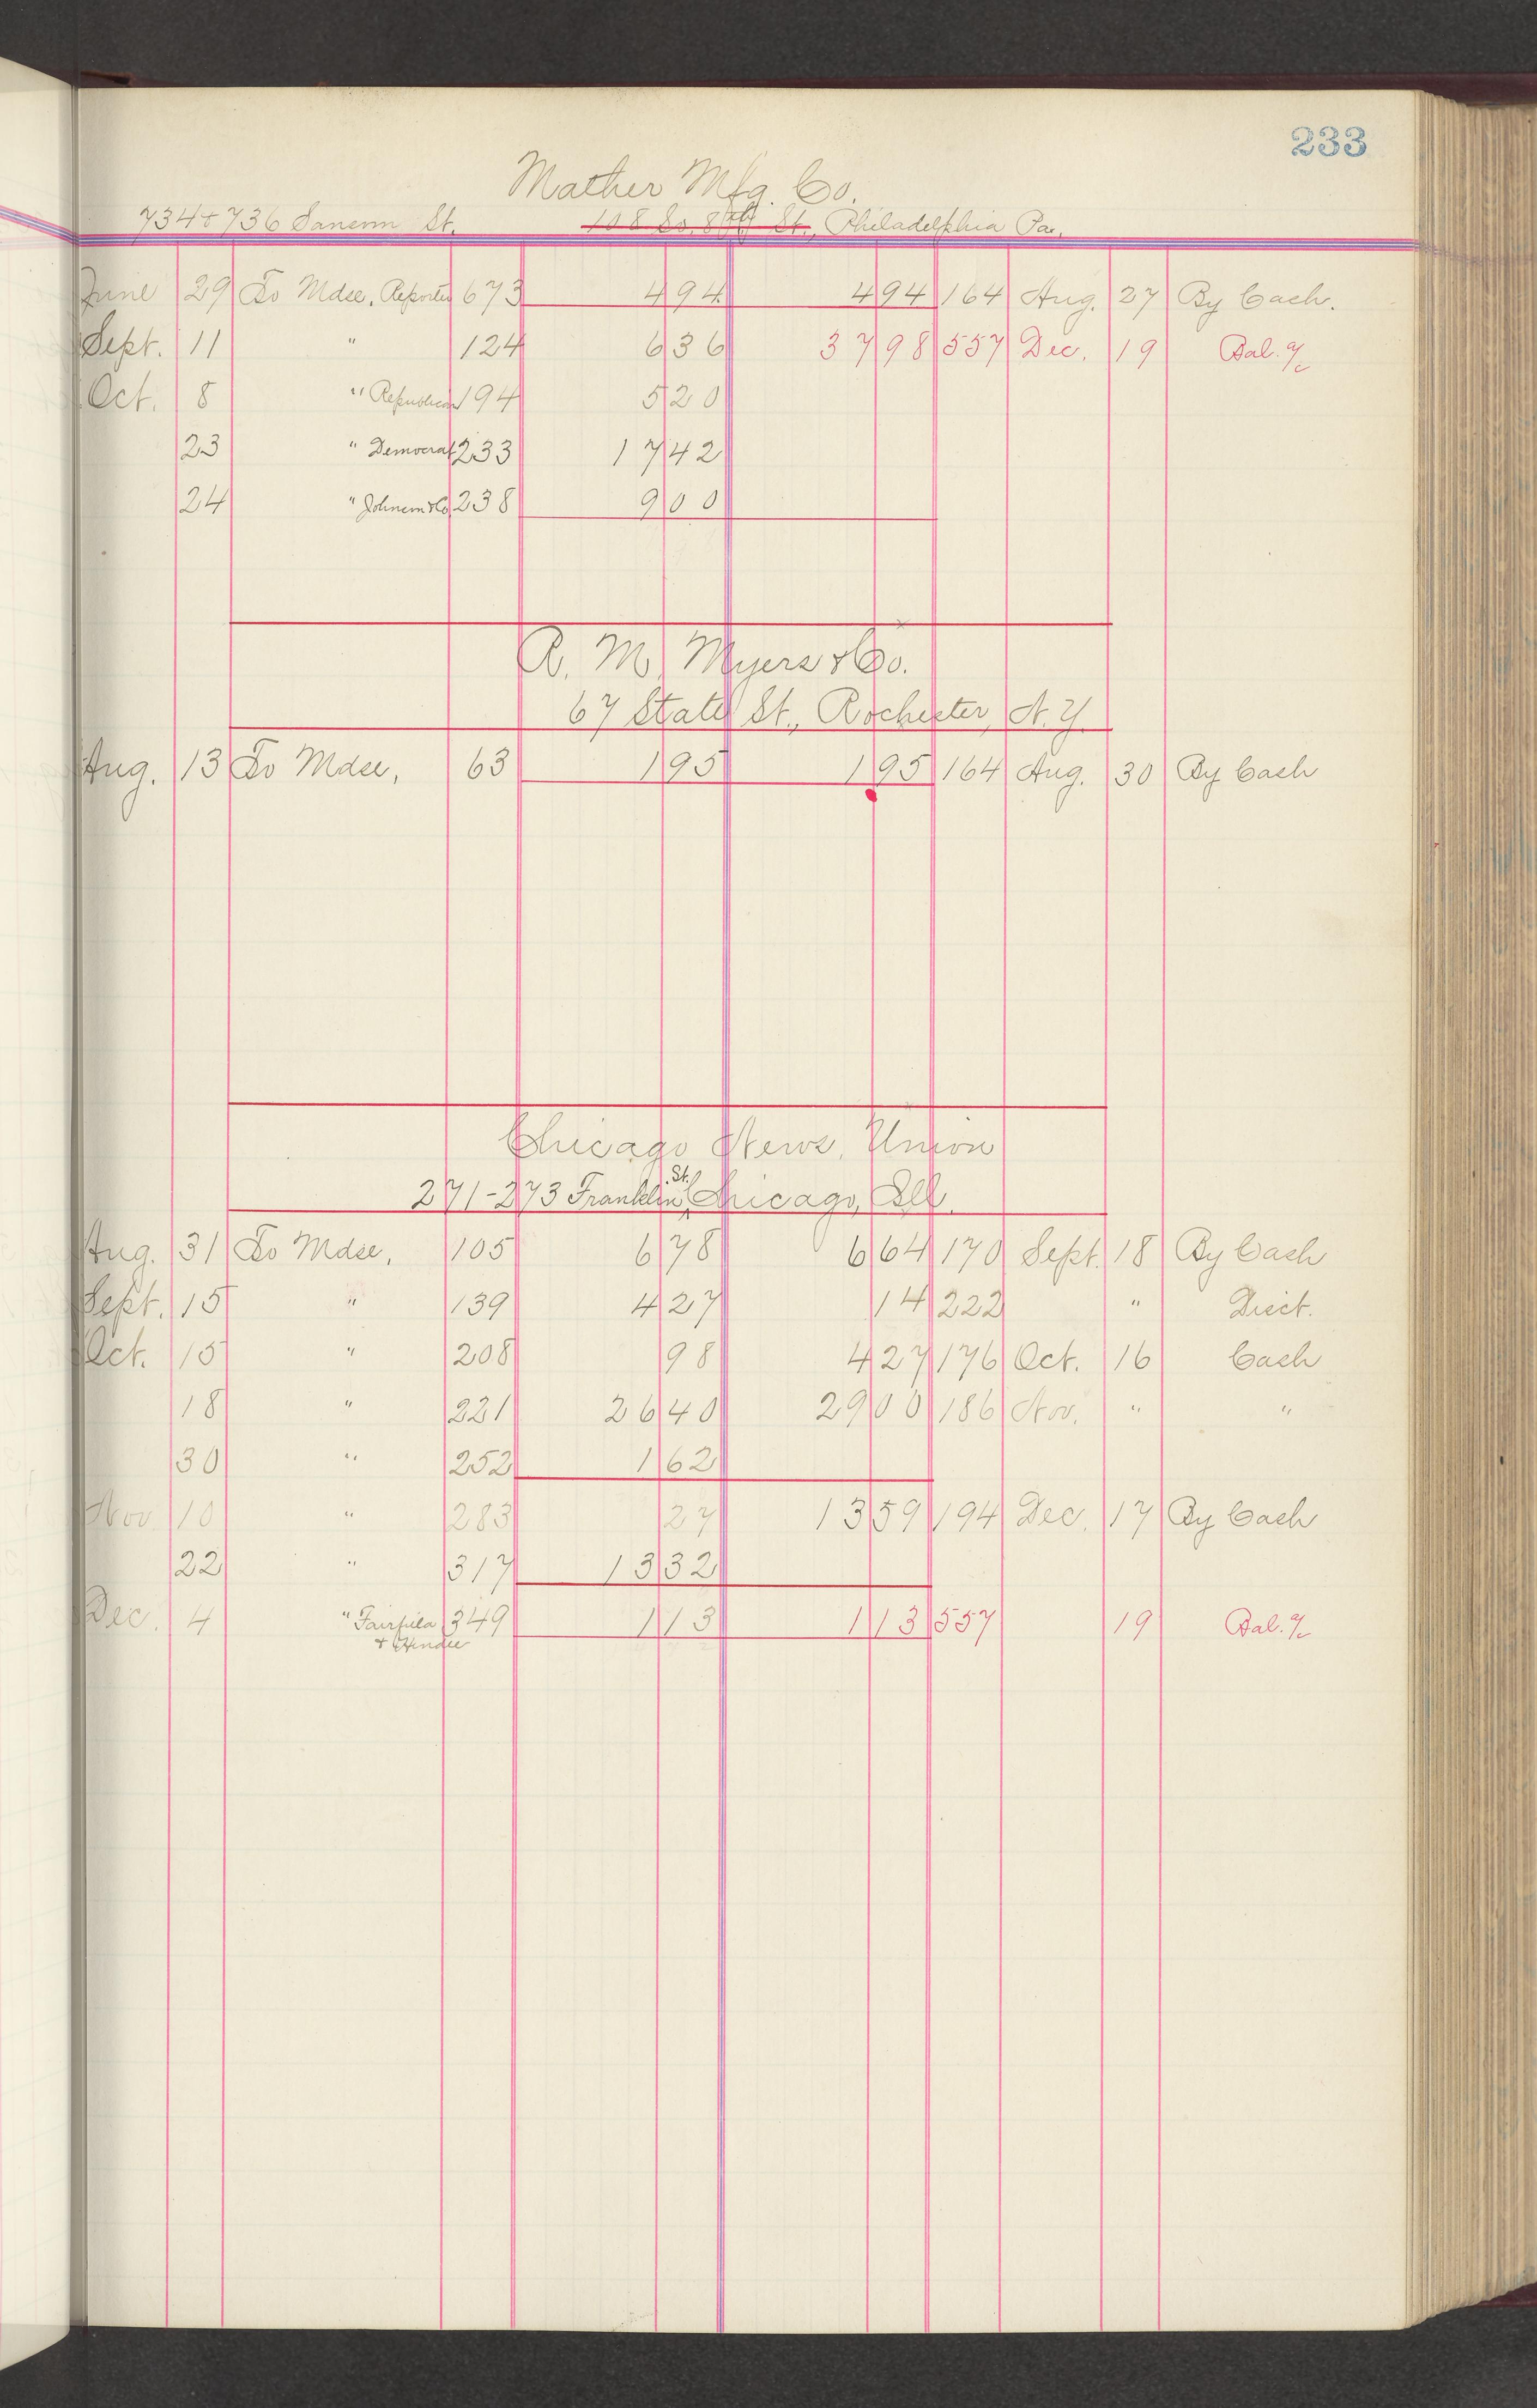 233
Mather Mfg. Co.
734 & 736 Sansom St. 108 So. 8th St., Philadelphia Pa.
June 29 To Mdse, Reporter 673 4 94 4 94 164 Aug. 27 By Cash.
Sept. 11 " 124 6 36 37 98 557 Dec. 19 Bal. a/c
Oct. 8 " Republican 194 5 20
23 " Democrat 233 17 42
24 " Johnson & Co 238 9 00
A. M. Myers & Co.
67 State St., Rochester, N.Y.
Aug. 13 To Mdse, 63 1 95 1 95 164 Aug. 30 By Cash
Chicago News, Union
271-273 Franklin St. Chicago, Ill.
Aug. 31 To Mdse, 105 6 78 6 64 170 Sept. 18 By Cash
Sept. 15 " 139 4 27 14 222 " Disct.
Oct. 15 " 208 98 4 27 176 Oct. 16 Cash
18 " 221 26 40 29 00 186 Nov. " "
30 " 252 1 62
Nov 10 " 283 27 13 59 194 Dec. 17 By Cash
22 " 317 13 32
Dec. 4 " Fairfield 349 1 13 1 13 557 19 Bal. a/c